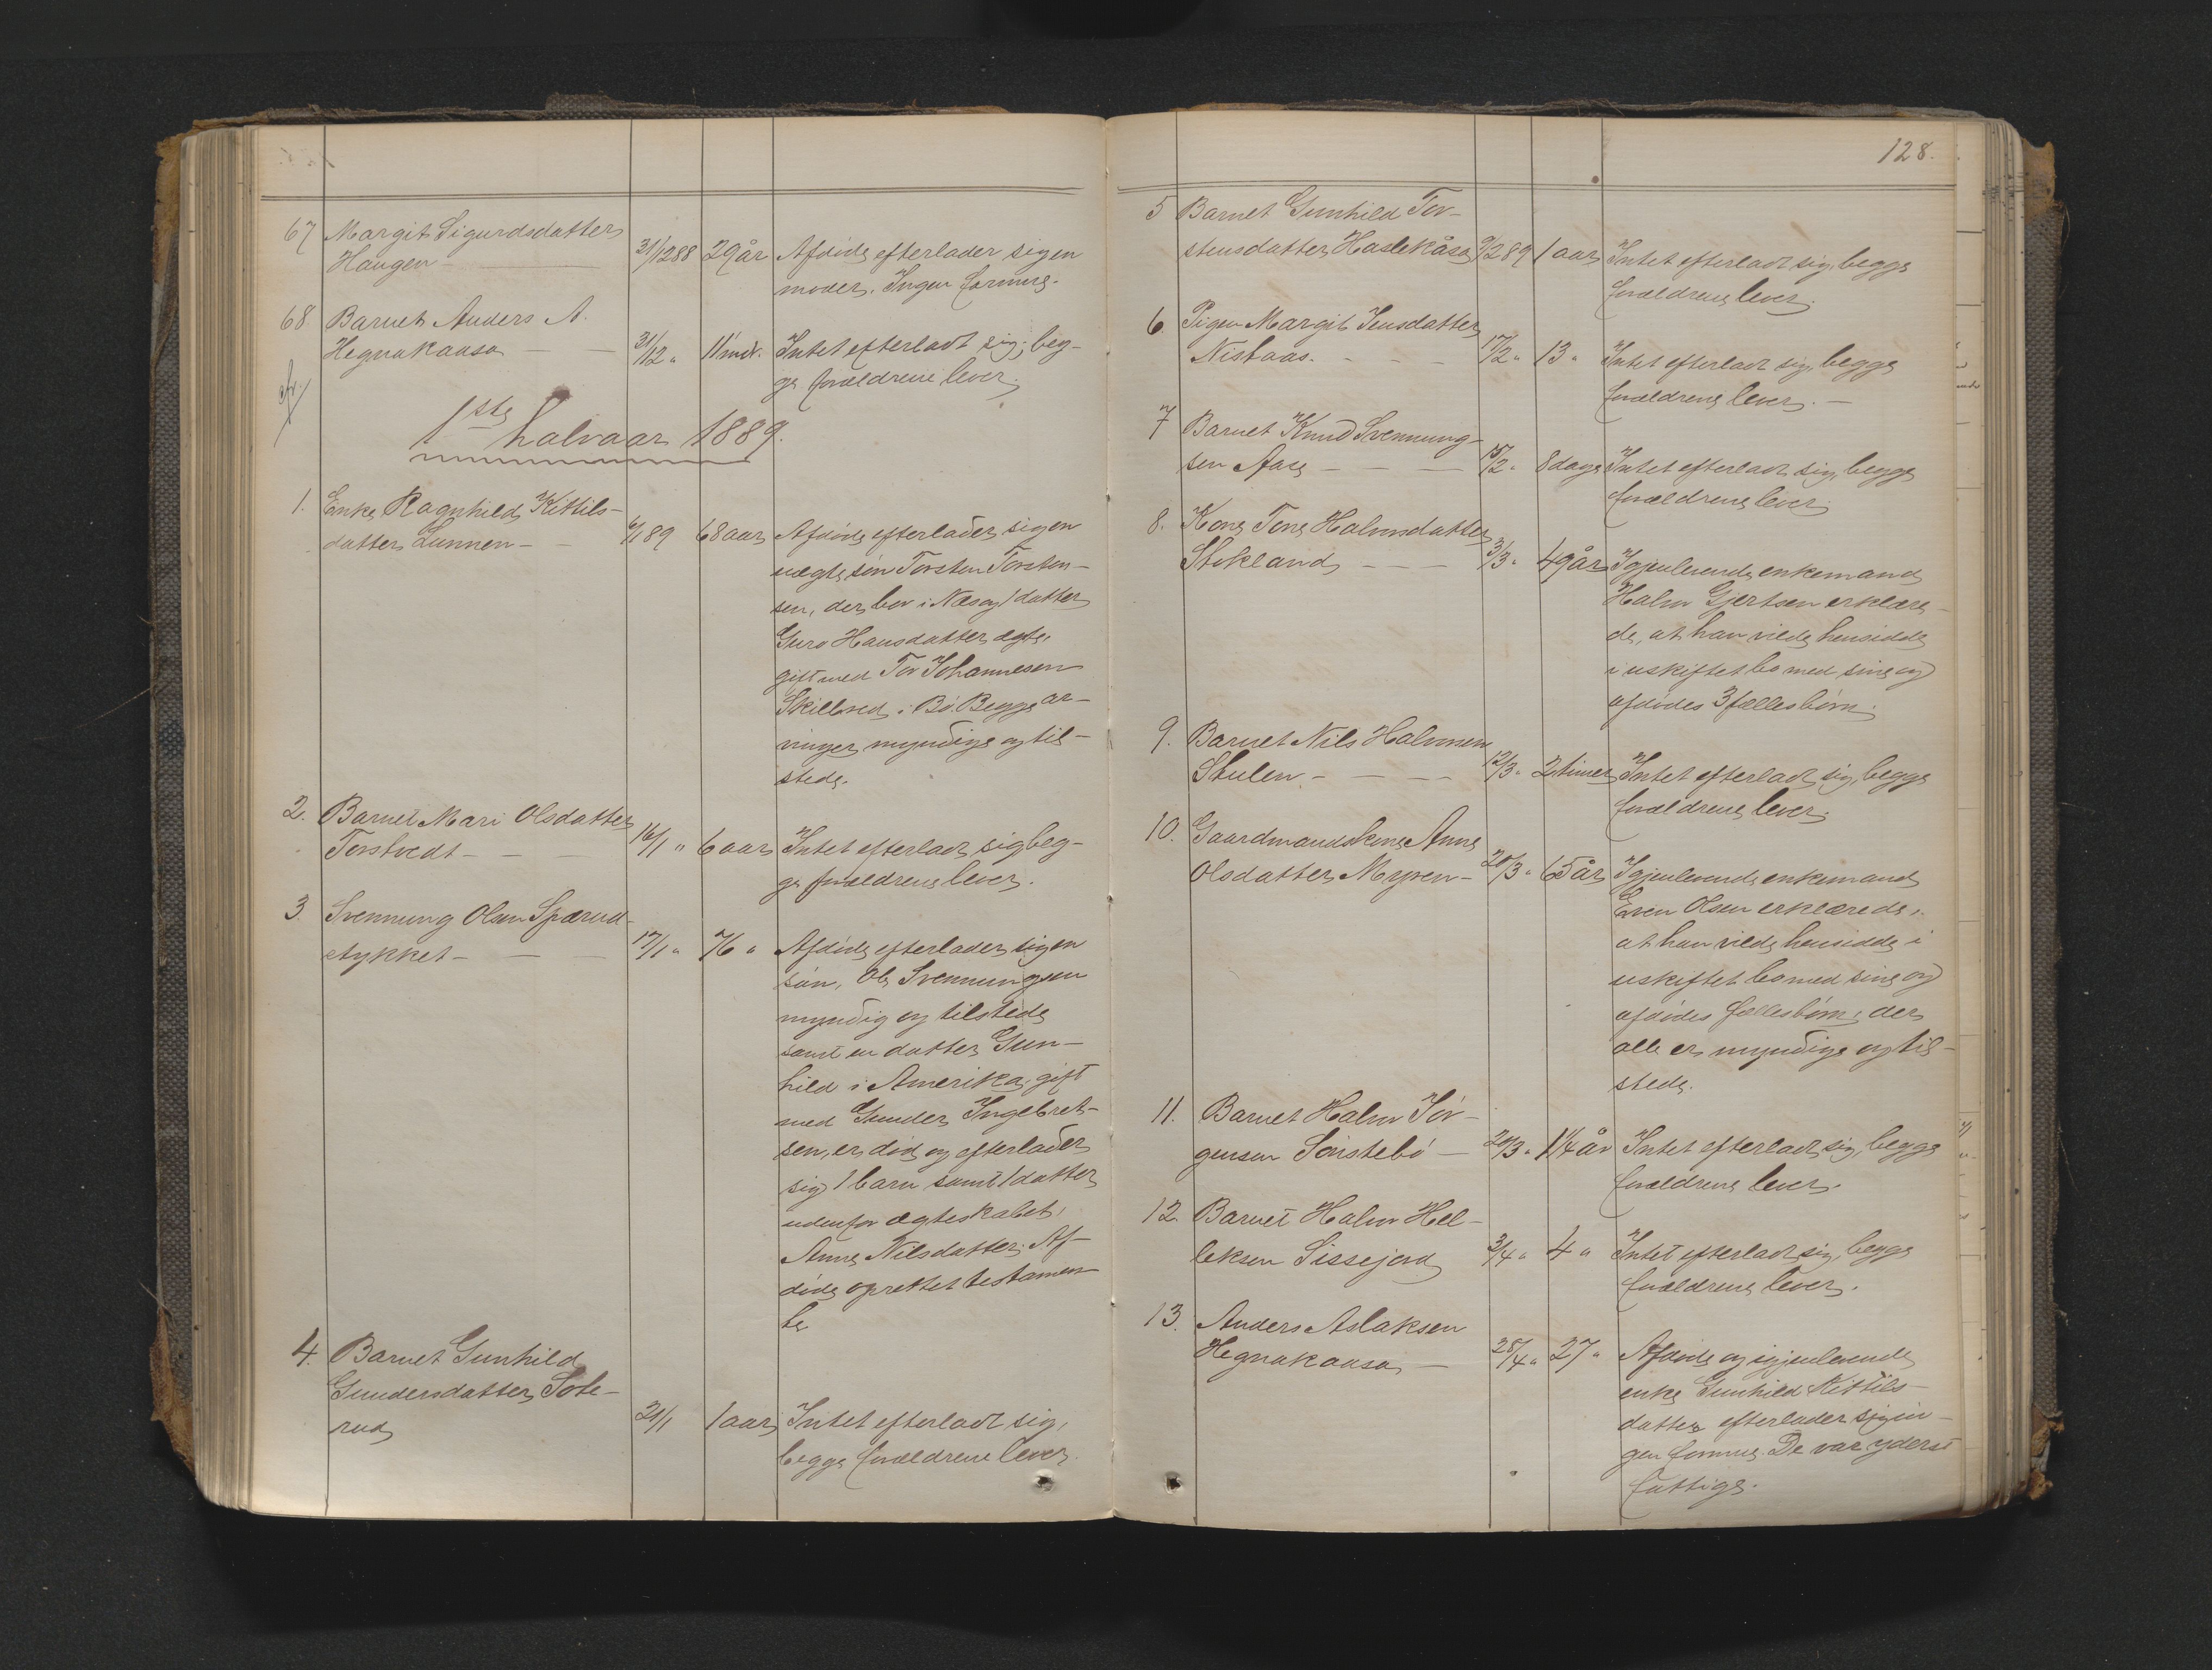 67 Margit Sigurdsdatter
Haugen — 31/12 88 29 år Afdöde efterlader sig en
moder. Ingen formue.
68. Barnet Anders A.
Hegnakaasa — — 31/12 " 11 mdr. Intet efterladt sig; beg-
ge forældrene lever.
1ste halvaar 1889.
1. Enke Ragnhild Kittils-
datter Lunnen — — 4/1 89 68 aar Afdöde efterlader sig en
uægte sön Torsten Torsten-
sen, der bor i Næs og 1 datter
Guro Hansdatter ægte,
gift med Tov Johannesen
i Bö. Begge ar-
vinger myndige og til-
stede.
2. Barnet Mari Olsdatter
Torstvedt — — — 16/1 " 6 aar Intet efterladt sig beg-
ge forældrene lever.
3. Svennung Olsen Spærud-
stykket — — — 17/1 " 76 " Afdöde efterlader sig en
sön, Ole Svennungsen
myndig og tilstede
samt en datter Gun-
hild i Amerika, gift
med Gunder Ingebret-
sen, er död og efterlader
sig 1 barn samt 1 datter
udenfor ægteskabet,
Anne Nilsdatter. Af-
döde oprettet testamen
te
4. Barnet Gunhild
Gundersdatter Sote-
rud 21/1 1 aar Intet efterladt sig,
begge forældrene lever.
128.
5 Barnet Gunhild Tor-
stensdatter Haslekåsa 9/2 89 1 aar Intet efterladt sig, begge
forældrene lever.
6. Pigen Margit Jensdatter
Nisbaas. — — — 17/2 " 13 " Intet efterladt sig, begge
forældrene lever. —
7 Barnet Knud Svennung-
sen Aase — — — 15/2 " 8 dage Intet efterladt sig, begge
forældrene lever.
8. Kone Tone Halvorsdatter
Stokland — — — 3/3 " 49 år Igjenlevende enkemand
Halvor Gjertsen erklære-
de, at han vilde hensidde
i uskiftet bo med sine og
afdödes 3 fællesbörn.
9. Barnet Nils Halvorsen
Skulen — — — 12/3 " 2 timer Intet efterladt sig, begge
forældrene lever.
10. Gaardmandskone Anne
Olsdatter Myren — 20/3 " 65 år Igjenlevende enkemand
Even Olsen erklærede,
at han vilde hensidde i
uskiftet bo med sine og
afdödes fællesbörn, der
alle er myndige og til-
stede.
11. Barnet Halvor Jör-
gensen Sönstebö — 20/3 " 1 1/4 år Intet efterladt sig, begge
forældrene lever.
12. Barnet Halvor Hel-
leksen Sissejord 3/4 " 4 " Intet efterladt sig, begge
forældrene lever.
13. Anders Aslaksen
Hegnakaasa — 28/4 " 27 " Afdöde og igjenlevende
enke Gunhild Kittils-
datter efterlader sig in-
gen formue. De var yderst
fattige.